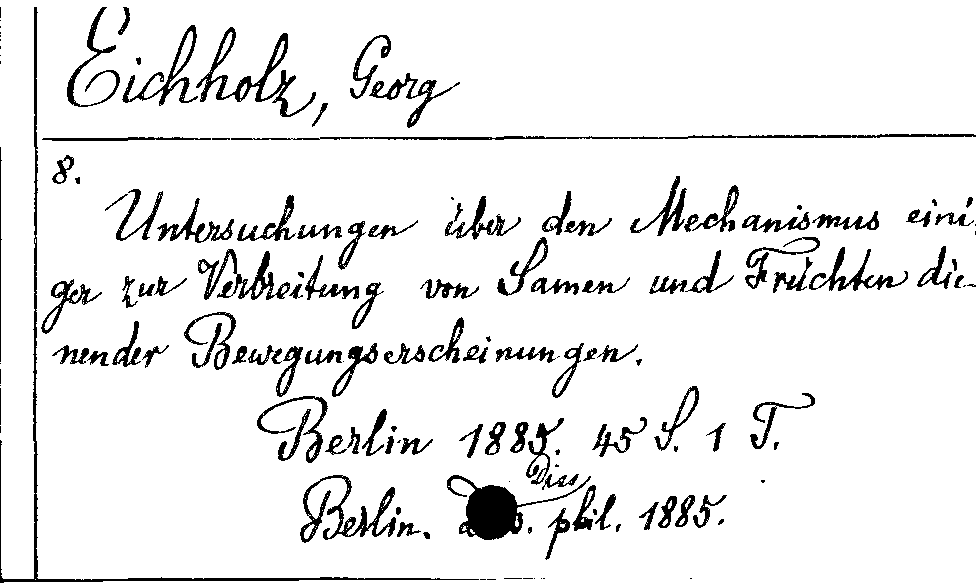 Eichholz, Georg
8.
Untersuchungen über den Mechanismus eini-
ger zur Verbreitung von Samen und Früchten die-
nender Bewegungserscheinungen.
Berlin 1885. 45 S. 1 T.
Diss
Berlin. phil. 1885.